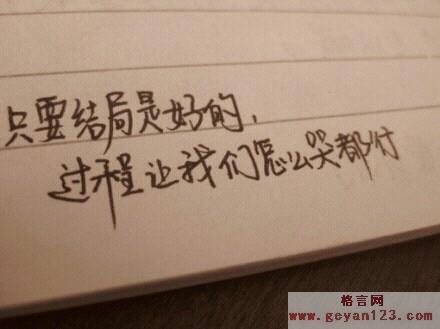 只要结局是好的，
过程让我们怎么哭都付
格言网
www.geyan123.com